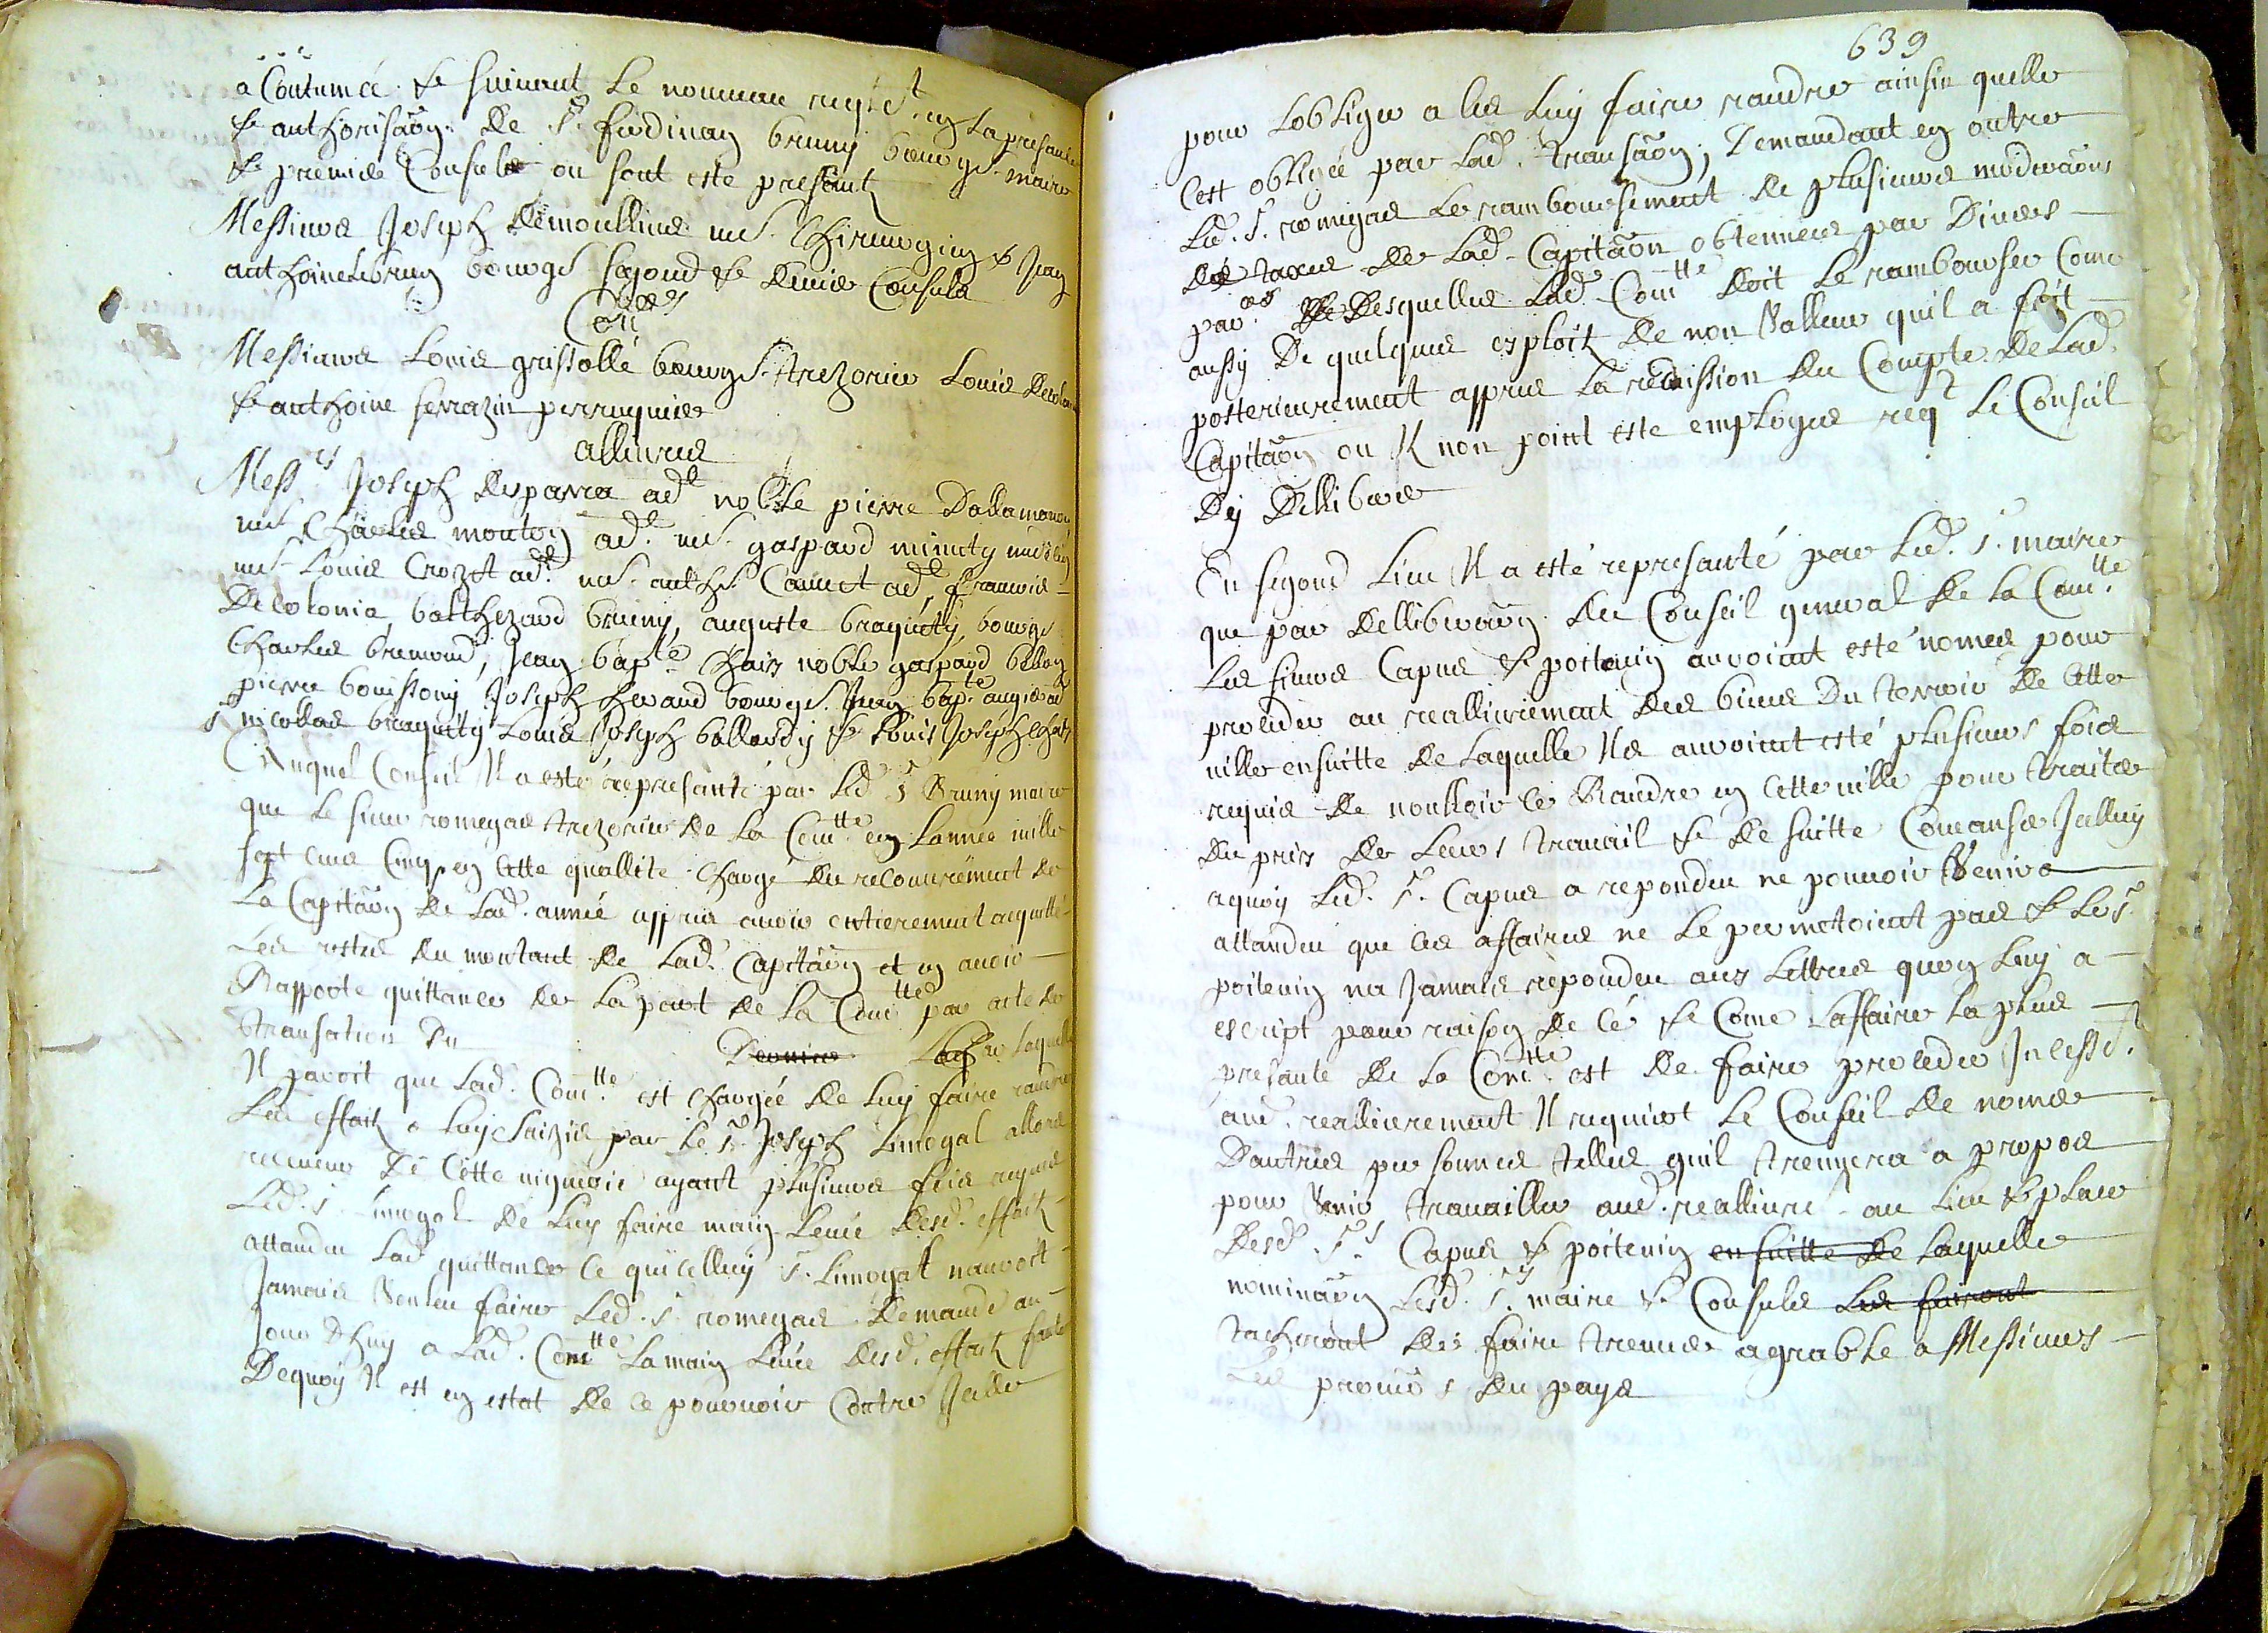 acoutumée & suivant le nouveau reglet en la presance
& authorisaōn de Sr ferdinan bruny bourgs maire
& premier Consul ou sont este presantz
Messieurs Joseph demoullins me Chirurgien & Jean
anthoine lebrun bourgs segond & dernier Consuls
Conlers
Messieurs Louis grissolle bourgs trezorier Louis decolonia
& anthoine serrazin perruquier
allivres
Messrs Joseph desparra adt noble pierre Dallamanon
me Charles mouton adt me gaspard minuty
me Louis Crozet adt me anths Camet adt francois
Decolonia balthezard bruny, auguste braquety bourgs
Charles bremond, Jean bapte noble gaspard
pierre bouissony Joseph heraud bourgs Jean bapte augier
nicollas braquety Louis Joseph ballardy & Louis Joseph
Auquel Conseil Il a este represanté par led Sr Bruny maire
que le sieur romegas trezorier de la Comtte en lannee mille
sept cens Cinq, en cette quallité chargé du recouvrement de
la Capitaōn de lad. année appres avoir entierement acquitté
les restes du montant de lad. Capitaōn et en avoir
Rapporté quittance de la part de la Comtte par acte de
transaction du
par laquelle
Il paroit que lad. Comtte est chargée de luy faire randre
les effaitz a luy saizis par le Sr Joseph Limogal allors
receveur de cette viguerie ayant plusieurs fois requis
Led. Sr Limogal de luy faire main levée desd. effaitz
attandu lad quittance ce quicelluy Sr Limogal nauroit
Jamais Vouleu faire Led. Sr romegas demande au-
jourdhuy a lad. Comtte la main levée desd. effaitz faute
Dequoy Il est en estat de ce pourvoir Contre Jcelle
639
pour lobliger a les luy faire randre ainsin quelle
cest obligée par lad. transaōn; Demandant en outre
led. Sr romegas le rambourcement de plusieurs moderaōns
des taxes de lad. Capitaōn obtenues par Divers
parrs desquelles lad. Comtte doit le rambourser Come
aussy De quelques exploitz de non Valleur quil a fait
posterieurement appres la redission du Compte de lad.
Capitaōn ou Il non point este employes reqt le Conseil
Dy Dellibere
En segond lieu Il a esté represanté par led. Sr maire
que par delliberaōn du Conseil general de la Comtte
les sieurs Capus & poitevin auroient esté nomes pour
proceder au reallivrement des biens du terroir de cette
ville ensuitte de laquelle Ils auroient esté plusieurs fois
requis de voulloir ce Randre en cette ville pour traiter
du prix de leurs travail & de suitte Comanser Jcelluy
aquoy Led. Sr Capus a repondu ne pouvoir Venir
attandu que ces affaires ne le permetoient pas & le Sr
poitevin na Jamais repondu aux Lettres quon luy a
escript pour raison de ce & Come laffaire la plus
presante de la Comtte est de faire proceder Incesst.
aud. reallivrement Il requiert le Conseil de nomer
Dautres personnes telles quil treuvera a propos
pour Venir travailler aud. reallivre au lieu & place
Desd. Srs Capus & poitevin en suitte de laquelle
nominaōn lesd. Srs maire & Consuls les fairont
tacheront de faire treuver agrable a Messieurs
Les procurs du pays